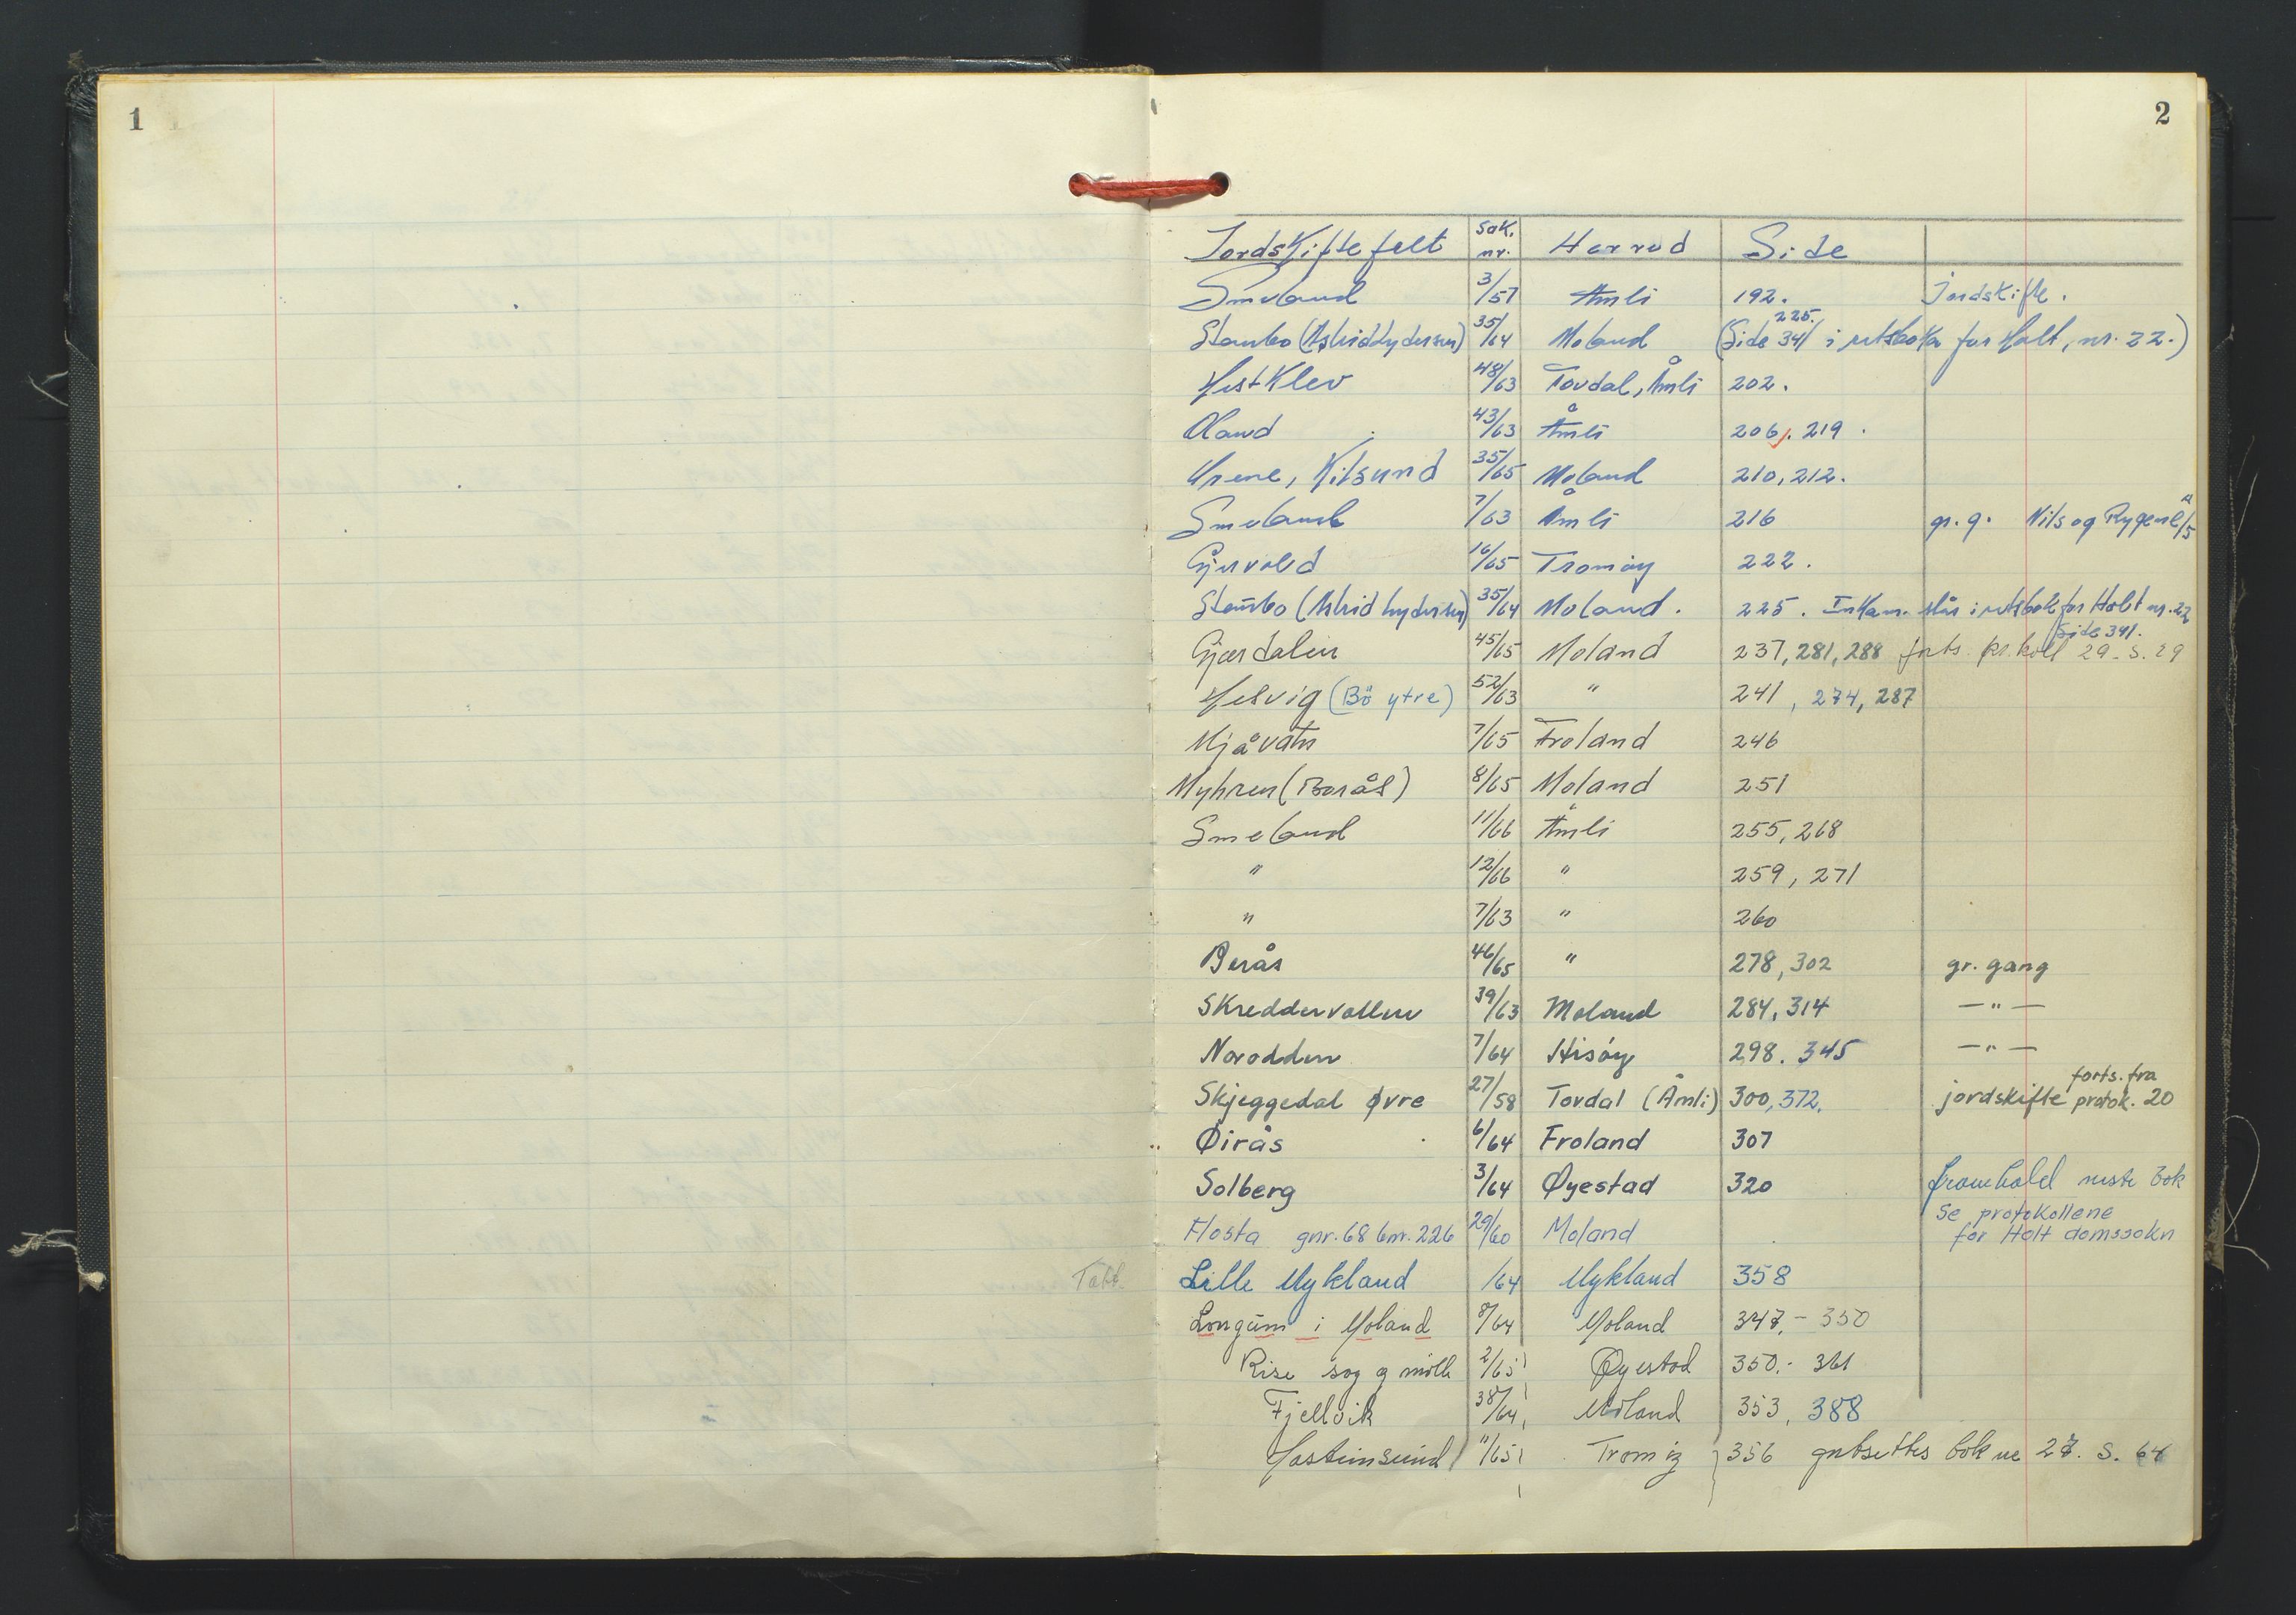 1
2
Jordskiftefelt Sak. nr. Herred Side
Smeland 3/57 Åmli 192. Jordskifte.
Stambo (Astrid Lydersen) 35/64 Moland (Side 341 i rettsboka for Holt, nr. 22.) 225.
Hestklev 48/63 Tovdal, Åmli 202.
Oland 43/63 Åmli 206, 219.
Urene, Kilsund 35/65 Moland 210, 212.
Smeland 7/63 Åmli 216 gr.g. Nils og Rygene
Gjervold 16/65 Tromøy 222.
Stambo (Astrid Lydersen) 35/64 Moland. 225. står i rettsbok for Holt nr. 22 Side 341.
Gjærdalen 45/65 Moland 237, 281, 288 forts. 29 - S. 29
Helvig (Bö ytre) 52/63 " 241, 274, 287
Mjåvatn 7/65 Froland 246
Myhren (Borås) 8/65 Moland 251
Smeland 11/66 Åmli 255, 268
" 12/66 " 259, 271
" 7/63 " 260
Berås 46/65 " 278, 302 gr. gang
Skreddervollen 39/63 Moland 284, 314 — " —
Norodden 7/64 Hisøy 298. 345 — " —
Skjeggedal Øvre 27/58 Tovdal (Åmli) 300, 372. jordskifte forts. fra protok. 20
Øirås 6/64 Froland 307
Solberg 3/64 Øyestad 320 neste bok
Flosta gnr. 68 bnr. 226 29/60 Moland Se protokollene for Holt domssokn
Lille Mykland /64 Mykland 358
Longum i Moland 8/64 Moland 347. - 350
Rise sag og mølle 2/65 Øyestad 350. - 361
Fjellvik 38/64 Moland 353, 388
Hasteinsund 11/65 Tromøy 356 bok nr 27. S. 64